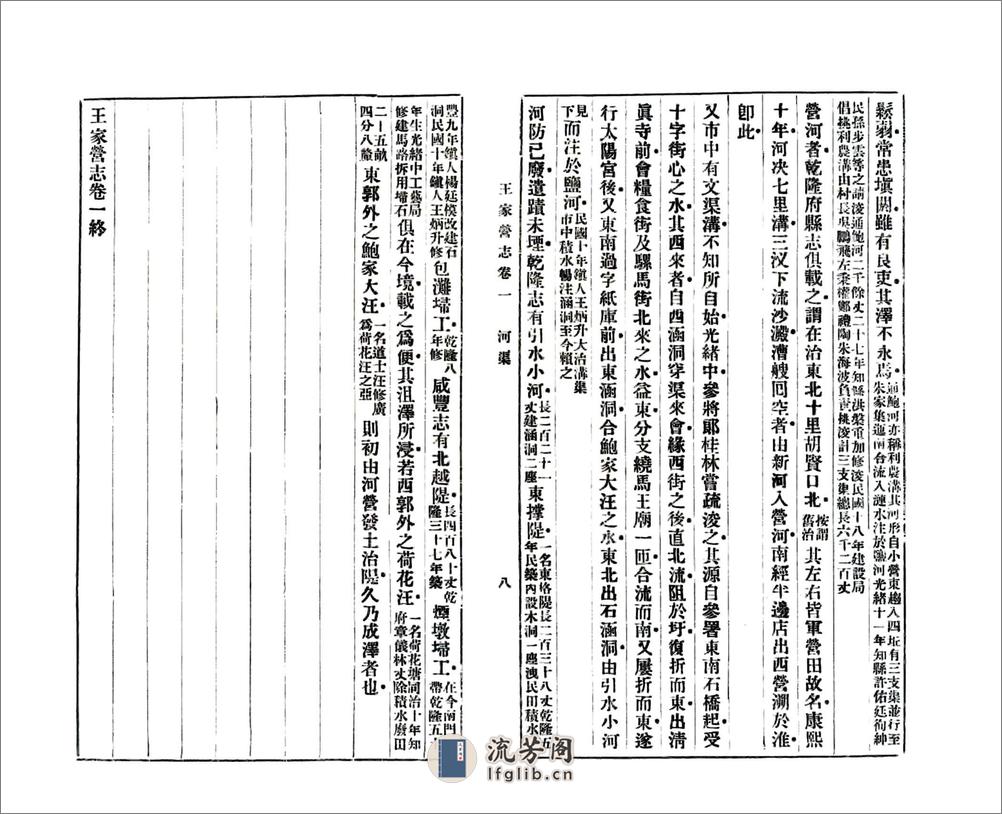 鬆弱常患塡閼雖有良吏其澤不永焉通鮑河亦稱利農溝其河形自小營東趨入四坵有三支渠並行至朱家集迤南合流入漣水注於鹽河光緒十一年知縣許佑廷徇紳
民孫步雲等之請淩通鮑河二千餘丈二十七年知縣洪槃重加修浚民國十八年建設局倡挑利農溝由村長吳鵬飛左秉權鄭禮陶朱海波負責挑淩計三支渠總長六千二百丈
營河者乾隆府縣志俱載之謂在治東北十里胡賢口北按謂舊治其左右皆軍營田故名康熙
十年河决七里溝三汊下流沙澱漕艘囘空者由新河入營河南經半邊店出西營澗於淮
卽此
又市中有文渠溝不知所自始光緒中參將鄖桂林嘗疏淩之其源自參署東南石橋起受
十字街心之水其西來者自西涵洞穿渠來會緣西街之後直北流阻於圩復折而東出淸
眞寺前會糧食街及騾馬街北來之水益東分支繞馬王廟一匝合流而南又屢折而東遂
行太陽宮後又東南過字紙庫前出東涵洞合鮑家大汪之水東北出石涵洞由引水小河
見下而注於鹽河民國十年鎭人王炳升大治溝渠市中積水暢注涵洞至今賴之
河防已廢遺蹟未堙乾隆志有引水小河長二百二十一丈建涵洞二座東撑隄一名東垎隄長二百三十八丈乾隆五年民築內設木洞一座洩民田積水咸
王家營志卷一 河渠 八
豐九年鎭人楊廷模改建石洞民國十年鎭人王炳升修包灘埽工乾隆八年修咸豐志有北越隄長四百八十丈乾隆三十七年築煙墩埽工在今南門一帶乾隆五十
年生光緖中工藝局修建馬路拆用埽石俱在今境載之爲便其沮澤所浸若西郭外之荷花汪一名荷花塘同治十年知府章儀林丈除積水廢田
二十五畝四分八釐東郭外之鮑家大汪一名道士汪修廣爲荷花汪之亞則初由河營發土治隄久乃成澤者也
王家營志卷一終
流芳閣
lfglib.cn